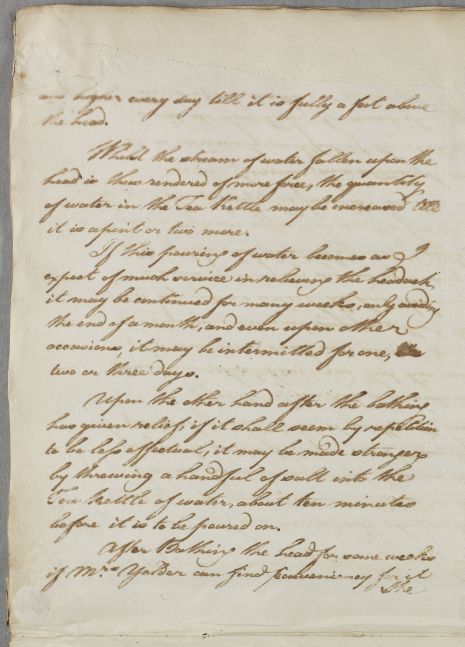 higher every day till it is fully a foot above
the head.
Whilst the stream of water fallen upon the
head is thus rendered of more force, the quantity
of water in the Tea Kettle may be increased till
it is a pint or two more.
If this pouring of water becomes as I
expect of much service in relieving the headach
it may be continued for many weeks, only
the end of a month, and even upon other
occasions, it may be intermitted for one,
two or three days.
Upon the other hand after the bathing
has given relief, if it shall seem by repetition
to be less effectual, it may be made stronger
by throwing a handful of salt into the
Tea kettle of water, about ten minutes
before it is to be poured on.
After Bathing the head for some weeks
if Mrs. can find conveniency for it
She